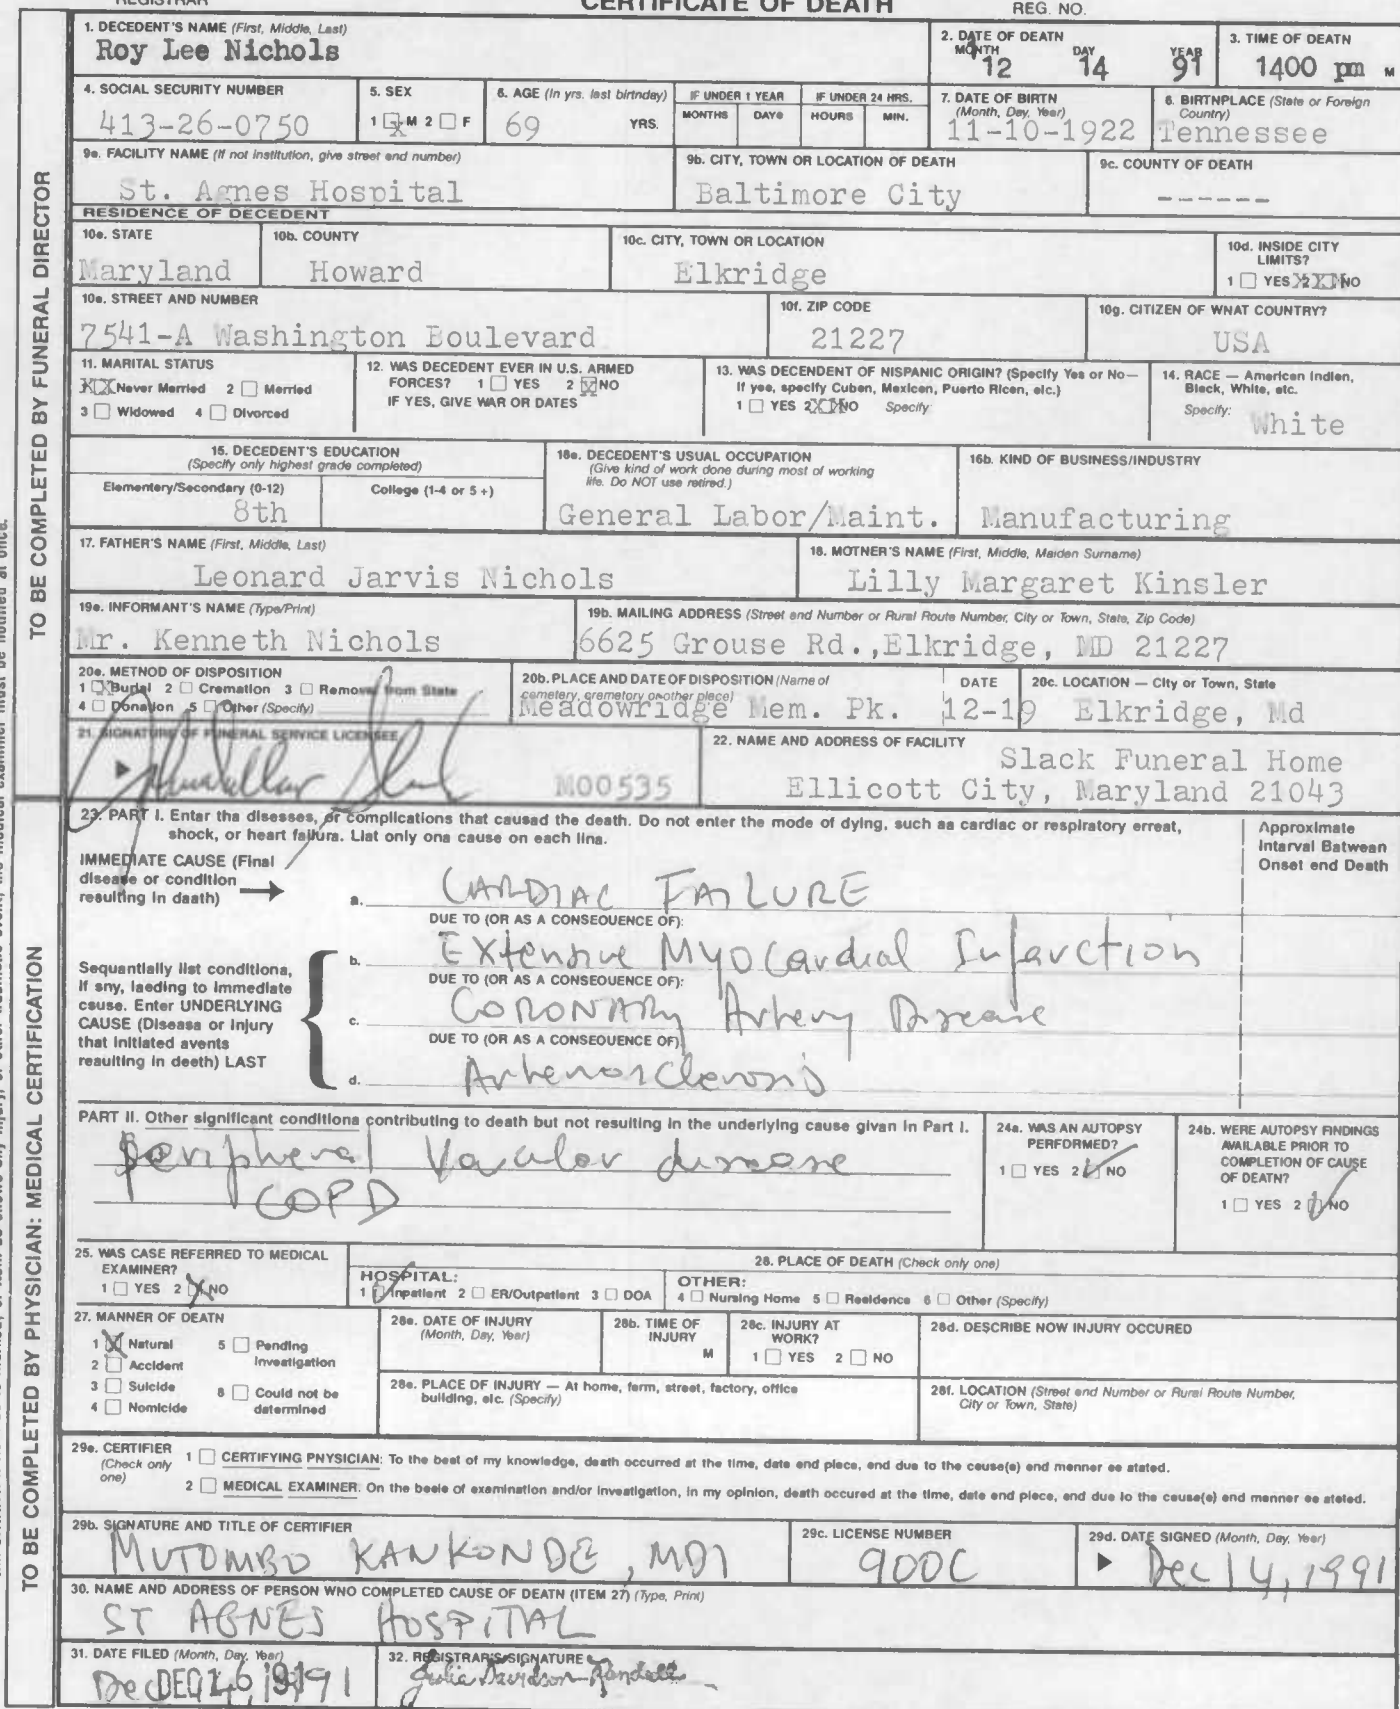 REGISTRAR
CERTIFICATE OF DEATH
REG. NO.
1. DECEDENT'S NAME (First, Middle, Last)
Roy Lee Nichols
2. DATE OF DEATH
MONTH DAY YEAR
12 14 91
3. TIME OF DEATH
1400 pm M
4. SOCIAL SECURITY NUMBER
413-26-0750
5. SEX
1 X M 2 F
6. AGE (In yrs. last birthday)
69 YRS.
IF UNDER 1 YEAR
MONTHS DAYS
IF UNDER 24 HRS.
HOURS MIN.
7. DATE OF BIRTH
(Month, Day, Year)
11-10-1922
8. BIRTHPLACE (State or Foreign Country)
Tennessee
9a. FACILITY NAME (If not institution, give street and number)
St. Agnes Hospital
9b. CITY, TOWN OR LOCATION OF DEATH
Baltimore City
9c. COUNTY OF DEATH
------
RESIDENCE OF DECEDENT
10a. STATE
Maryland
10b. COUNTY
Howard
10c. CITY, TOWN OR LOCATION
Elkridge
10d. INSIDE CITY LIMITS?
1 YES 2 XX NO
10e. STREET AND NUMBER
7541-A Washington Boulevard
10f. ZIP CODE
21227
10g. CITIZEN OF WHAT COUNTRY?
USA
11. MARITAL STATUS
XX Never Married 2 Married
3 Widowed 4 Divorced
12. WAS DECEDENT EVER IN U.S. ARMED
FORCES? 1 YES 2 X NO
IF YES, GIVE WAR OR DATES
13. WAS DECENDENT OF HISPANIC ORIGIN? (Specify Yes or No—
If yes, specify Cuban, Mexican, Puerto Rican, etc.)
1 YES 2 XX NO Specify:
14. RACE — American Indian,
Black, White, etc.
Specify:
White
15. DECEDENT'S EDUCATION
(Specify only highest grade completed)
Elementary/Secondary (0-12)
8th
College (1-4 or 5+)
16a. DECEDENT'S USUAL OCCUPATION
(Give kind of work done during most of working
life. Do NOT use retired.)
General Labor/Maint.
16b. KIND OF BUSINESS/INDUSTRY
Manufacturing
17. FATHER'S NAME (First, Middle, Last)
Leonard Jarvis Nichols
18. MOTHER'S NAME (First, Middle, Maiden Surname)
Lilly Margaret Kinsler
19a. INFORMANT'S NAME (Type/Print)
Mr. Kenneth Nichols
19b. MAILING ADDRESS (Street and Number or Rural Route Number, City or Town, State, Zip Code)
6625 Grouse Rd.,Elkridge, MD 21227
20a. METHOD OF DISPOSITION
1 X Burial 2 Cremation 3 Removal from State
4 Donation 5 Other (Specify)
20b. PLACE AND DATE OF DISPOSITION (Name of
cemetery, crematory or other place)
Meadowridge Mem. Pk.
DATE
12-19
20c. LOCATION — City or Town, State
Elkridge, Md
21. SIGNATURE OF FUNERAL SERVICE LICENSEE
M00535
22. NAME AND ADDRESS OF FACILITY
Slack Funeral Home
Ellicott City, Maryland 21043
23. PART I. Enter the diseases, or complications that caused the death. Do not enter the mode of dying, such as cardiac or respiratory arrest,
shock, or heart failure. List only one cause on each line.
Approximate
Interval Between
Onset and Death
IMMEDIATE CAUSE (Final
disease or condition
resulting in death)
a. CARDIAC FAILURE
DUE TO (OR AS A CONSEQUENCE OF):
b. Extensive Myocardial Infarction
DUE TO (OR AS A CONSEQUENCE OF):
c. CORONARY Artery Disease
DUE TO (OR AS A CONSEQUENCE OF):
d. Arteriosclerosis
Sequentially list conditions,
if any, leading to immediate
cause. Enter UNDERLYING
CAUSE (Disease or injury
that initiated events
resulting in death) LAST
PART II. Other significant conditions contributing to death but not resulting in the underlying cause given in Part I.
peripheral Vascular disease
COPD
24a. WAS AN AUTOPSY
PERFORMED?
1 YES 2 NO
24b. WERE AUTOPSY FINDINGS
AVAILABLE PRIOR TO
COMPLETION OF CAUSE
OF DEATH?
1 YES 2 NO
25. WAS CASE REFERRED TO MEDICAL
EXAMINER?
1 YES 2 X NO
26. PLACE OF DEATH (Check only one)
HOSPITAL:
1 Inpatient 2 ER/Outpatient 3 DOA
OTHER:
4 Nursing Home 5 Residence 6 Other (Specify)
27. MANNER OF DEATH
1 X Natural 5 Pending
2 Accident Investigation
3 Suicide 6 Could not be
4 Homicide determined
28a. DATE OF INJURY
(Month, Day, Year)
28b. TIME OF
INJURY
M
28c. INJURY AT
WORK?
1 YES 2 NO
28d. DESCRIBE HOW INJURY OCCURED
28e. PLACE OF INJURY — At home, farm, street, factory, office
building, etc. (Specify)
28f. LOCATION (Street and Number or Rural Route Number,
City or Town, State)
29a. CERTIFIER
(Check only
one)
1 CERTIFYING PHYSICIAN: To the best of my knowledge, death occurred at the time, date and place, and due to the cause(s) and manner as stated.
2 MEDICAL EXAMINER. On the basis of examination and/or investigation, in my opinion, death occured at the time, date and place, and due to the cause(s) and manner as stated.
29b. SIGNATURE AND TITLE OF CERTIFIER
MUTOMBO KANKONDE, MD
29c. LICENSE NUMBER
900C
29d. DATE SIGNED (Month, Day, Year)
Dec 14, 1991
30. NAME AND ADDRESS OF PERSON WHO COMPLETED CAUSE OF DEATH (ITEM 27) (Type, Print)
ST AGNES HOSPITAL
31. DATE FILED (Month, Day, Year)
DEC 16 1991
32. REGISTRAR'S SIGNATURE
Julia Davidson-Randall
TO BE COMPLETED BY FUNERAL DIRECTOR
TO BE COMPLETED BY PHYSICIAN: MEDICAL CERTIFICATION